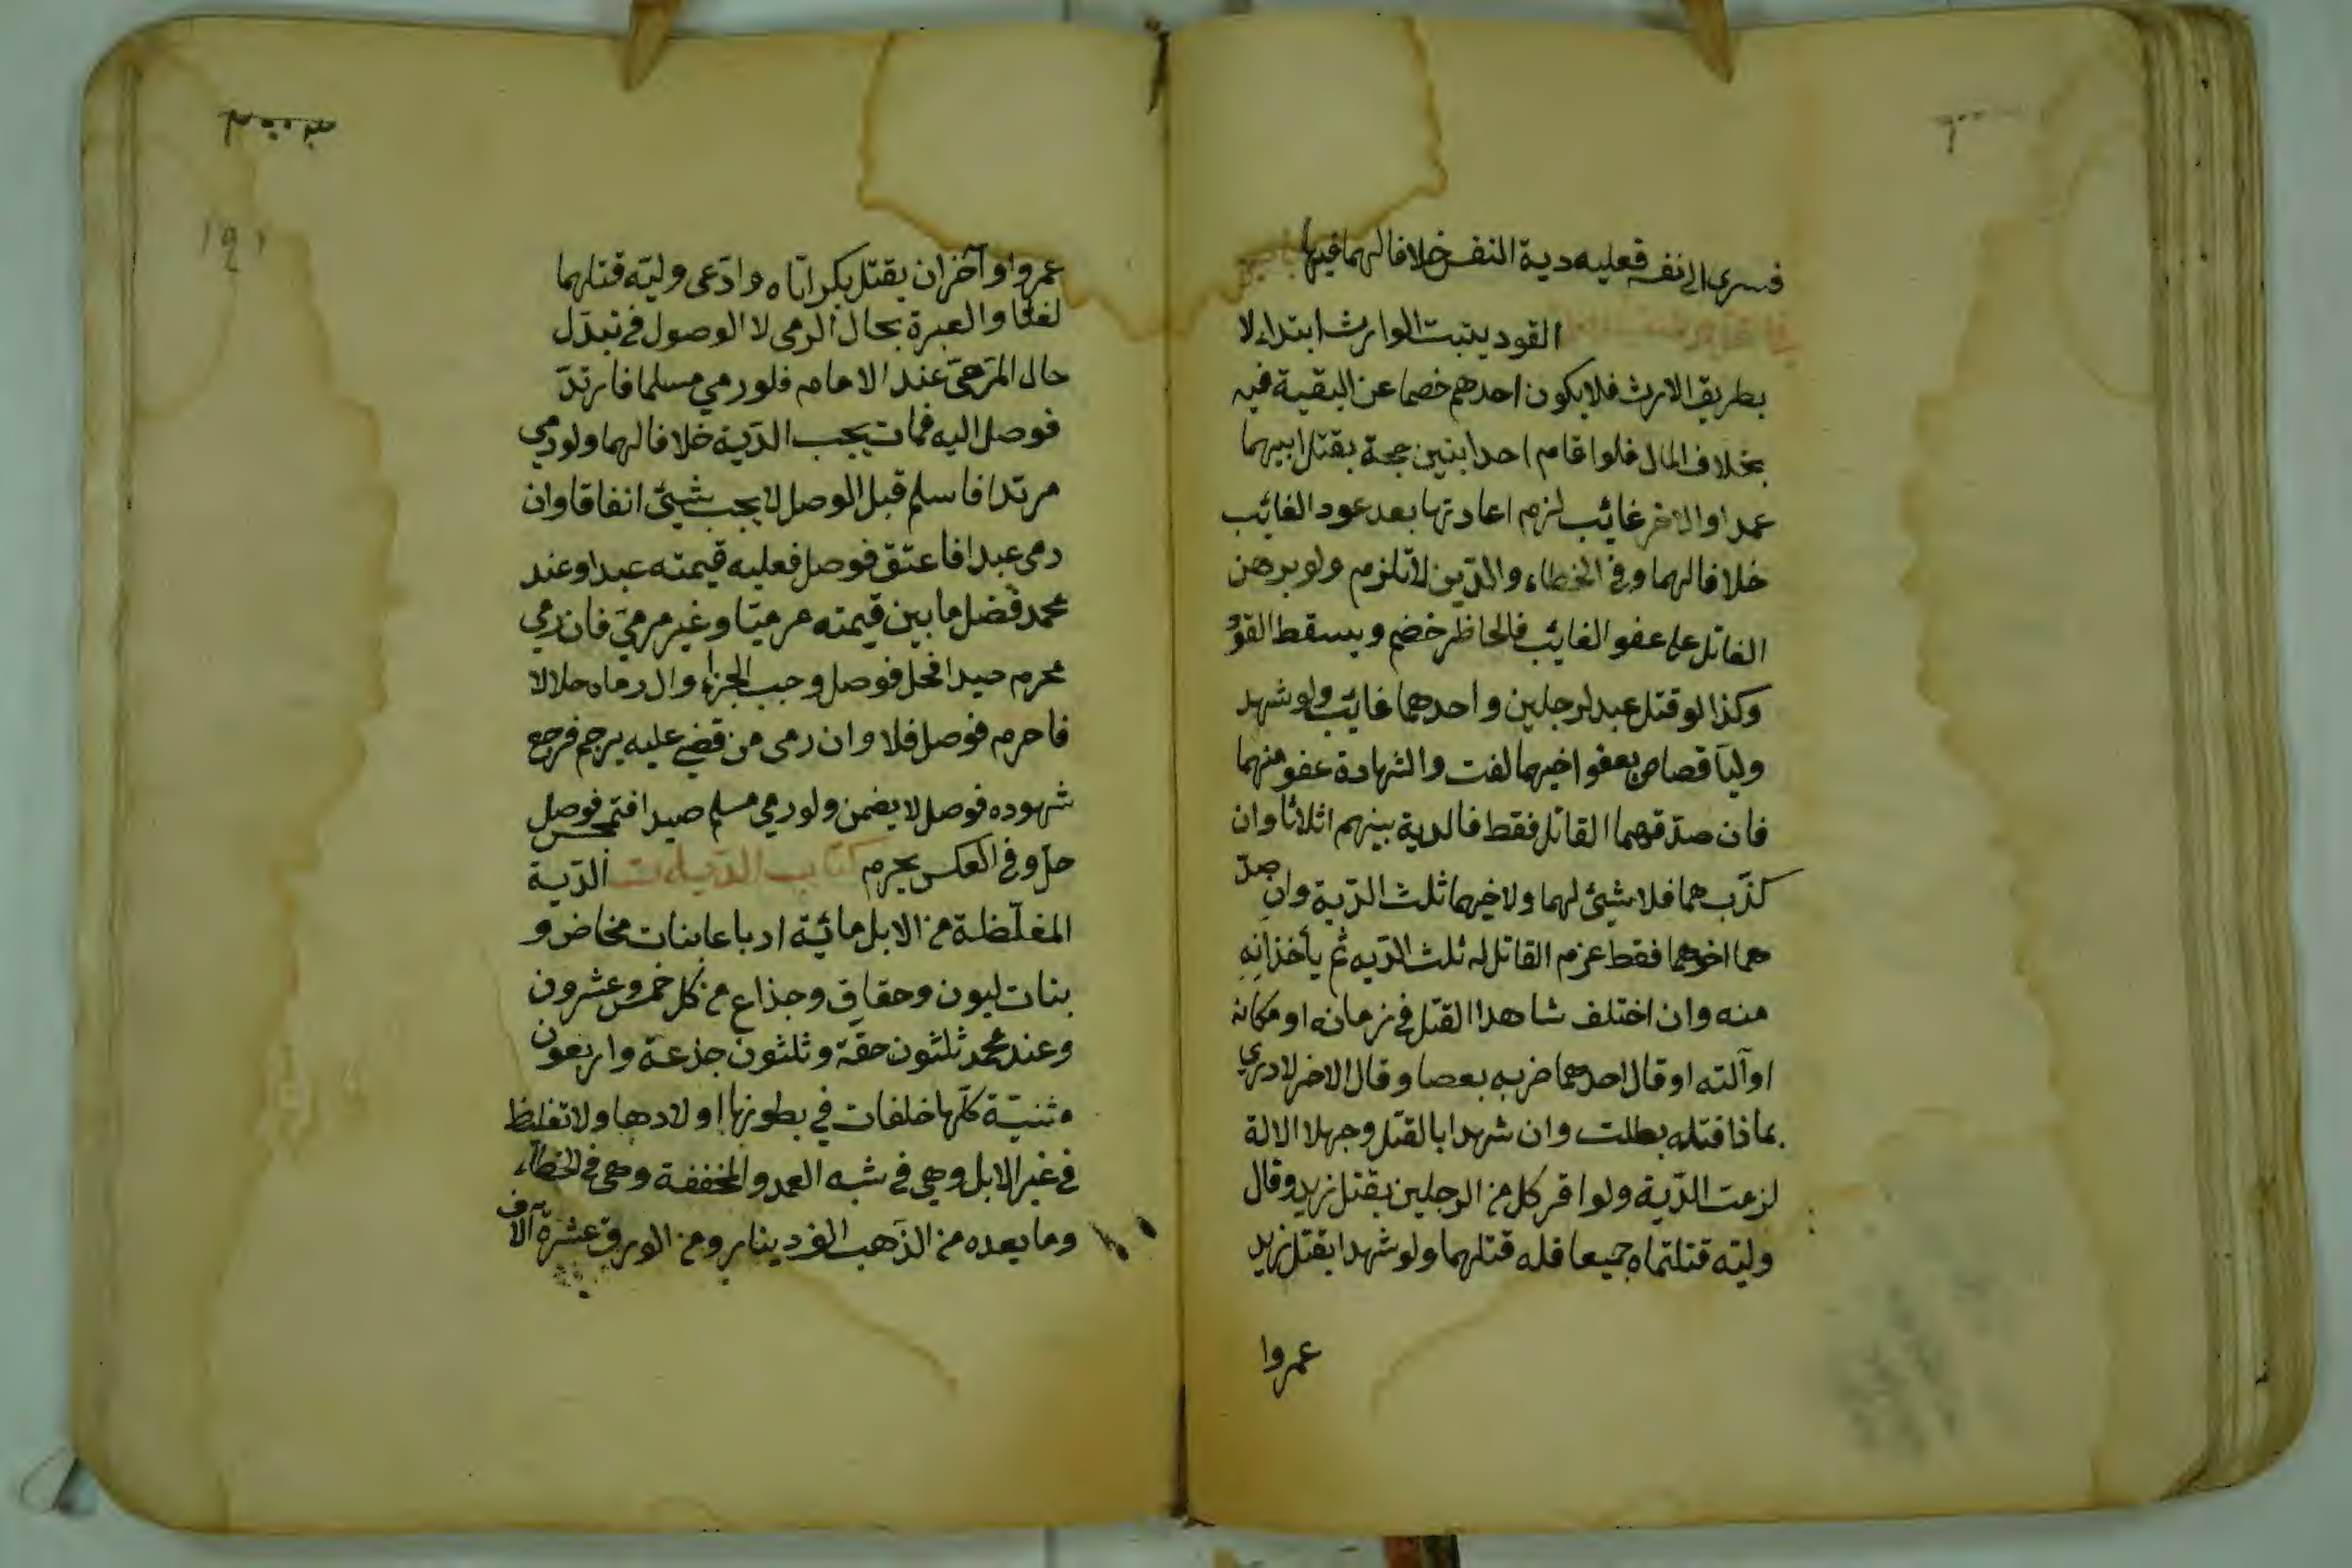 فسرى الى نفسه فعليه دية النفس خلافا لهما فيها باب
القود يثبت للوارث ابتداء لا
بطريق الارث فلا يكون احدهم خصما عن البقية فيه
بخلاف المال فلو اقام احد ابنين حجة بقتل ابيهما
عمدا والاخر غائب لزم اعادتها بعد عود الغائب
خلافا لهما وفي الخطاء والدّين لا تلزم ولو برهن
القاتل على عفو الغائب فالحاظر خضم ويسقط القود
وكذا لو قتل عبد لرجلين واحدهما غائب ولو شهد
وليّا قصاص بعفو اخيهما لغت والشهادة عفو منهما
فان صدّقهما القاتل فقط فالدية بينهم اثلاثا وان
كذّب هما فلا شيئ لهما ولاخيهما ثلث الدّية وان صدّ
هما اخوهما فقط غرم القاتل له ثلث الدّيه ثم يأخذانه
منه وان اختلف شاهدا القتل في زمانه او مكانه
او آلته او قال احدهما ضربه بعصا وقال الاخر لا دري
بماذا قتله بطلت وان شهدا بالقتل وجهلا الالة
لزمت الدّية ولو اقر كل من الرجلين بقتل زيد وقال
وليّه قتلتماه جميعا فله قتلهما ولو شهدا بقتل زيد
عمروا
١٩١
عمروا وآخران بقتل بكر ايّاه وادّعى وليّه قتلهما
لغتا والعبرة بحال الرمى لا الوصول في تبدّل
حال المرميّ عند الامام فلو رمي مسلما فارتدّ
فوصل اليه فمات يجب الدّية خلافا لهما ولو رمي
مرتدا فاسلم قبل الوصل لا يجب شيئ اتفاقا وان
رمى عبدا فاعتق فوصل فعليه قيمته عبدا وعند
محمد فضل ما بين قيمته مرميّا وغير مرميّ فان رمي
محرم صيدا فحل فوصل وجب الجزاء وال رماه حلالا
فاحرم فوصل فلا وان رمى من قضي عليه برجم فرجع
شهوده فوصل لا يضمن ولو رمي مسلم صيدا فتمجس فوصل
حلّ وفي العكس يحرم كتاب الدّيات الدّية
المغلّظة من الابل مائة ارباعا بنات مخاض و
بنات لبون وحقاق وجذاع من كل خمس وعشرون
وعند محمد ثلثون حقّة وثلثون جذعة واربعون
ثنيّة كلّها خلفات في بطونها اولادها ولا تغليظ
في غير الابل وهي في شبه العمد والمخففة وهي في الخطاء
وما بعده من الذّهب الف دينار ومن الورق عشرة آلاف